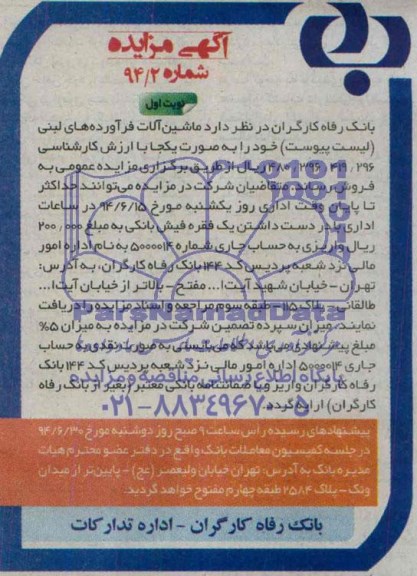 آگهی مزایده
شماره ۹۴/۲
نوبت اول
بانک رفاه کارگران در نظر دارد ماشین‌آلات فرآورده‌های لبنی
(لیست پیوست) خود را به صورت یکجا با ارزش کارشناسی
ریال از طریق برگزاری مزایده عمومی به
فروش رساند. متقاضیان شرکت در مزایده می‌توانند حداکثر
تا پایان وقت اداری روز یکشنبه مورخ ۹۴/۶/۱۵ در ساعات
اداری با در دست داشتن یک فقره فیش بانکی به مبلغ ۲۰۰,۰۰۰
ریال واریزی به حساب جاری شماره ۵۰۰۰۰۱۴ به نام اداره امور
مالی نزد شعبه پردیس کد ۱۴۴ بانک رفاه کارگران، به آدرس:
تهران - خیابان شهید آیت‌ا... مفتح - بالاتر از خیابان آیت‌ا...
طالقانی - پلاک ۱۱۵ - طبقه سوم مراجعه و اسناد مزایده را دریافت
نمایند. میزان سپرده تضمین شرکت در مزایده به میزان ۵%
مبلغ پیشنهادی می‌باشد که می‌بایستی به صورت نقدی به حساب
جاری ۵۰۰۰۰۱۴ اداره امور مالی نزد شعبه پردیس کد ۱۴۴ بانک
رفاه کارگران واریز و یا ضمانتنامه بانکی معتبر (بغیر از بانک رفاه
کارگران) ارایه گردد.
پیشنهادهای رسیده راس ساعت ۹ صبح روز دوشنبه مورخ ۹۴/۶/۳۰
در جلسه کمیسیون معاملات بانک واقع در دفتر عضو محترم هیات
مدیره بانک به آدرس: تهران خیابان ولیعصر (عج) - پایین‌تر از میدان
ونک - پلاک ۲۵۸۴ طبقه چهارم مفتوح خواهد گردید.
بانک رفاه کارگران - اداره تدارکات
ParsNamadData
پایگاه اطلاع رسانی مناقصه و مزایده
۰۲۱-۸۸۳۴۹۶۷۰-۵